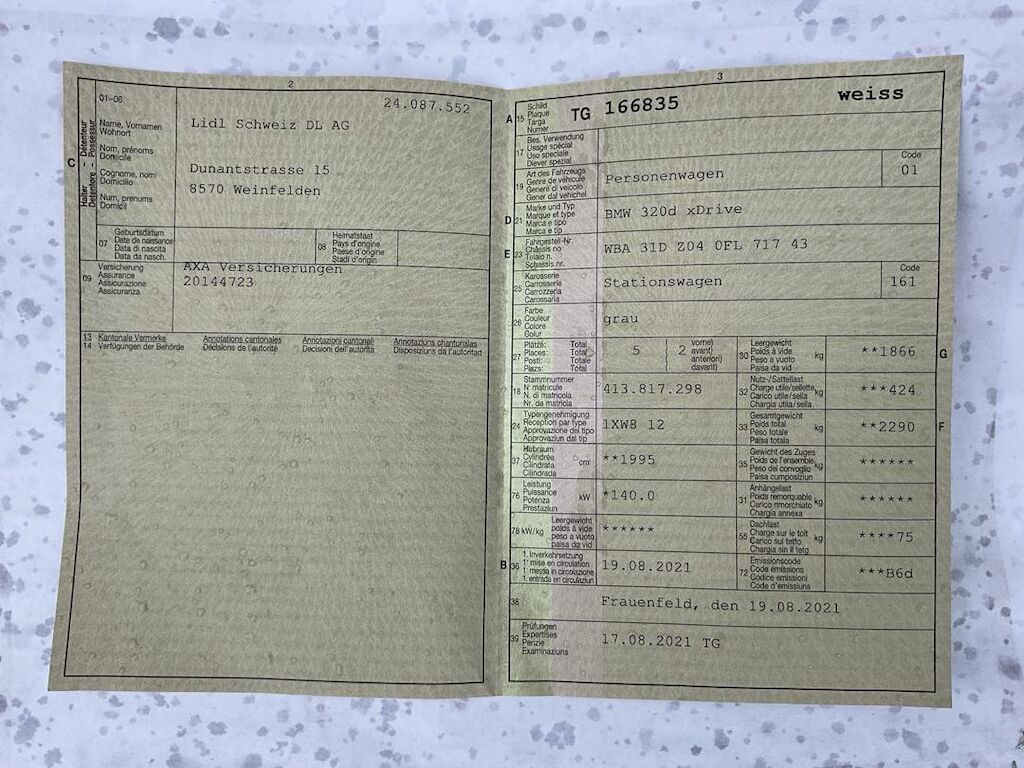 2
01-06
24.087.552
C
Halter - Détenteur
Detentore - Possessur
Name, Vornamen
Wohnort
Nom, prénoms
Domicile
Cognome, nomi
Domicilio
Num, prenums
Domicil
Lidl Schweiz DL AG
Dunantstrasse 15
8570 Weinfelden
07
Geburtsdatum
Date de naissance
Data di nascita
Data da nasch.
08
Heimatstaat
Pays d'origine
Paese d'origine
Stadi d'origin
09
Versicherung
Assurance
Assicurazione
Assicuranza
AXA Versicherungen
20144723
13
14
Kantonale Vermerke
Verfügungen der Behörde
Annotations cantonales
Décisions de l'autorité
Annotazioni cantonali
Decisioni dell'autorità
Annotaziuns chantunalas
Disposiziuns da l'autoritad
3
A 15
Schild
Plaque
Targa
Numer
TG 166835
weiss
17
Bes. Verwendung
Usage spécial
Uso speciale
Diever spezial
19
Art des Fahrzeugs
Genre de véhicule
Genere di veicolo
Gener dal vehichel
Personenwagen
Code
01
D 21
Marke und Typ
Marque et type
Marca e tipo
Marca e tip
BMW 320d xDrive
E 23
Fahrgestell-Nr.
Châssis no
Telaio n.
Schassis nr.
WBA 31D Z04 0FL 717 43
25
Karosserie
Carrosserie
Carrozzeria
Carossaria
Stationswagen
Code
161
26
Farbe
Couleur
Colore
Colur
grau
27
Plätze: Total
Places: Total
Posti: Totale
Plazs: Total
5
2
vorne)
avant)
anteriori)
davant)
30
Leergewicht
Poids à vide
Peso a vuoto
Paisa da vid
kg
**1866
G
18
Stammnummer
N° matricule
N. di matricola
Nr. da matricla
413.817.298
32
Nutz-/Sattellast
Charge utile/sellette
Carico utile/sella
Chargia utila/sella
kg
***424
24
Typengenehmigung
Réception par type
Approvazione del tipo
Approvaziun dal tip
1XW8 12
33
Gesamtgewicht
Poids total
Peso totale
Paisa totala
kg
**2290
F
37
Hubraum
Cylindrée
Cilindrata
Cilindrada
cm³
**1995
35
Gewicht des Zuges
Poids de l'ensemble
Peso del convoglio
Paisa cumposiziun
kg
******
76
Leistung
Puissance
Potenza
Prestaziun
kW
*140.0
31
Anhängelast
Poids remorquable
Carico rimorchiato
Chargia annexa
kg
******
78 kW/kg
Leergewicht
poids à vide
peso a vuoto
paisa da vid
******
55
Dachlast
Charge sur le toit
Carico sul tetto
Chargia sin il tetg
kg
****75
B 36
1. Inverkehrsetzung
1re mise en circulation
1. messa in circolazione
1. entrada en circulaziun
19.08.2021
72
Emissionscode
Code émissions
Codice emissioni
Code d'emissiuns
***B6d
38
Frauenfeld, den 19.08.2021
39
Prüfungen
Expertises
Perizie
Examinaziuns
17.08.2021 TG